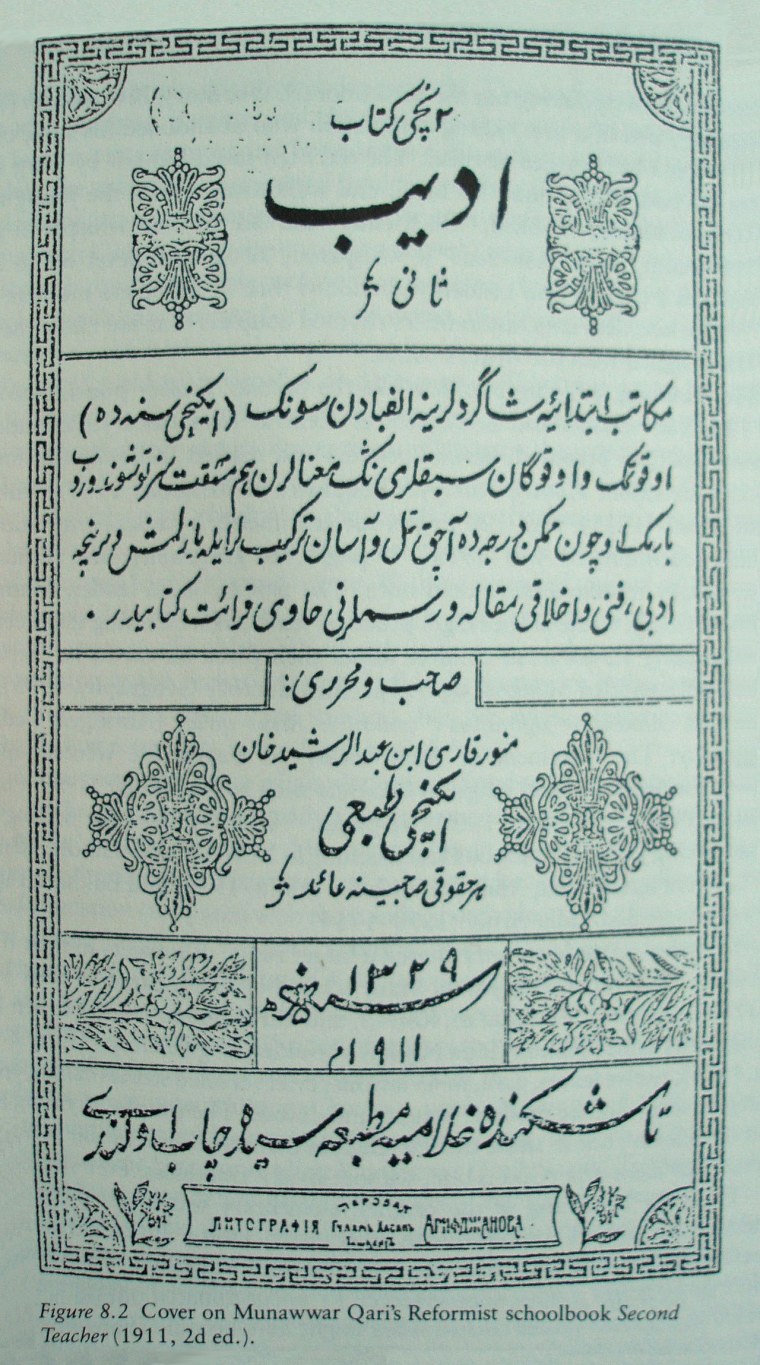 ۲ نچی کتاب
ادیب
ثانی
مکاتب ابتدائیه شاگردلرینه الفبادن سونک (ایکنچی سنه ده)
اوقوتمک و اوقوگان سبقلری نڭ معنالرن هم مشقت سز توشوندورب
بارمک اوچون ممکن درجه ده آچق تل و آسان ترکیب لر ایله یازلمش دیرنچه
ادبی، فنی و اخلاقی مقاله و رسملرنی حاوی قرائت کتابیدر .
صاحب و محرری:
منور قاری ابن عبدالرشید خان
ایکنچی طبعی
هر حقوقی صاحبینه عائد
۱۳۲۹
سنه
۱۹۱۱م
تاشکندده غلامیه مطبعه سیده چاپ اولندی
ЛИТОГРАФІЯ Гулямъ Хасанъ АРИФДЖАНОВА
Figure 8.2 Cover on Munawwar Qari's Reformist schoolbook Second
Teacher (1911, 2d ed.).